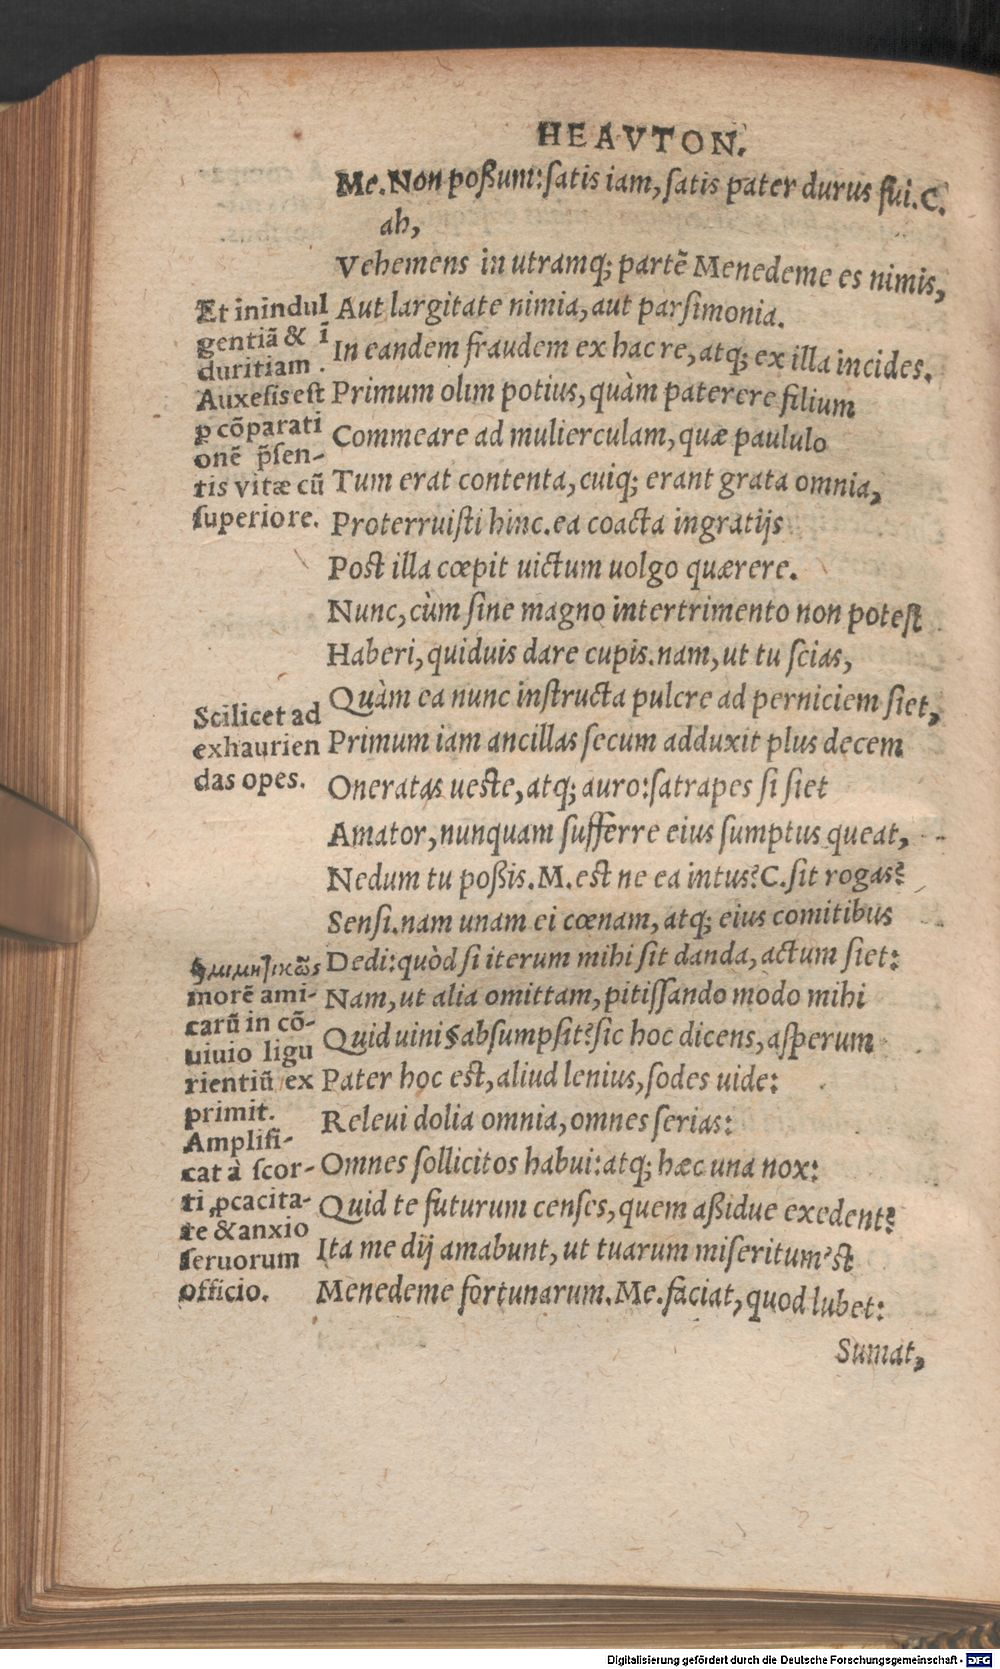 HEAVTON.
Me. Non poßum: ſatis iam, ſatis pater durus fui. C.
ah,
Vehemens in utramq; partẽ Menedeme es nimis,
Aut largitate nimia, aut parſimonia.
In eandem fraudem ex hac re, atq; ex illa incides.
Primum olim potius, quàm paterere filium
Commeare ad mulierculam, quæ paululo
Tum erat contenta, cuiq; erant grata omnia,
Proterruiſti hinc. ea coacta ingratijs
Post illa cœpit uictum uolgo quærere.
Nunc, cùm ſine magno intertrimento non poteſt
Haberi, quiduis dare cupis. nam, ut tu ſcias,
Quàm ea nunc inſtructa pulcre ad perniciem ſiet,
Primum iam ancillas ſecum adduxit plus decem
Oneratas ueſte, atq; auro: ſatrapes ſi ſiet
Amator, nunquam ſufferre eius ſumptus queat,
Nedum tu poßis. M. est ne ea intus? C. ſit rogas?
Senſi. nam unam ei cœnam, atq; eius comitibus
Dedi: quòd ſi iterum mihi ſit danda, actum ſiet:
Nam, ut alia omittam, pitiſſando modo mihi
Quid uini § abſumpſit? ſic hoc dicens, aſperum
Pater hoc est, aliud lenius, ſodes uide:
Releui dolia omnia, omnes ſerias:
Omnes ſollicitos habui: atq; hæc una nox:
Quid te futurum cenſes, quem aßidue exedent?
Ita me dij amabunt, ut tuarum miſeritum'st
Menedeme fortunarum. Me. faciat, quod lubet:
Sumat,
Et inindul
gentiã & ĩ
duritiam.
Auxeſis eſt
ꝑ cõparati
onẽ p̃ſen-
tis vitæ cũ
ſuperiore.
Scilicet ad
exhaurien
das opes.
§ μιμητικῶς
morẽ ami-
carũ in cõ-
uiuio ligu
rientiũ ex
primit.
Amplifi-
cat à ſcor-
ti ꝓcacita-
te & anxio
ſeruorum
officio.
Digitalisierung gefördert durch die Deutsche Forschungsgemeinschaft - DFG